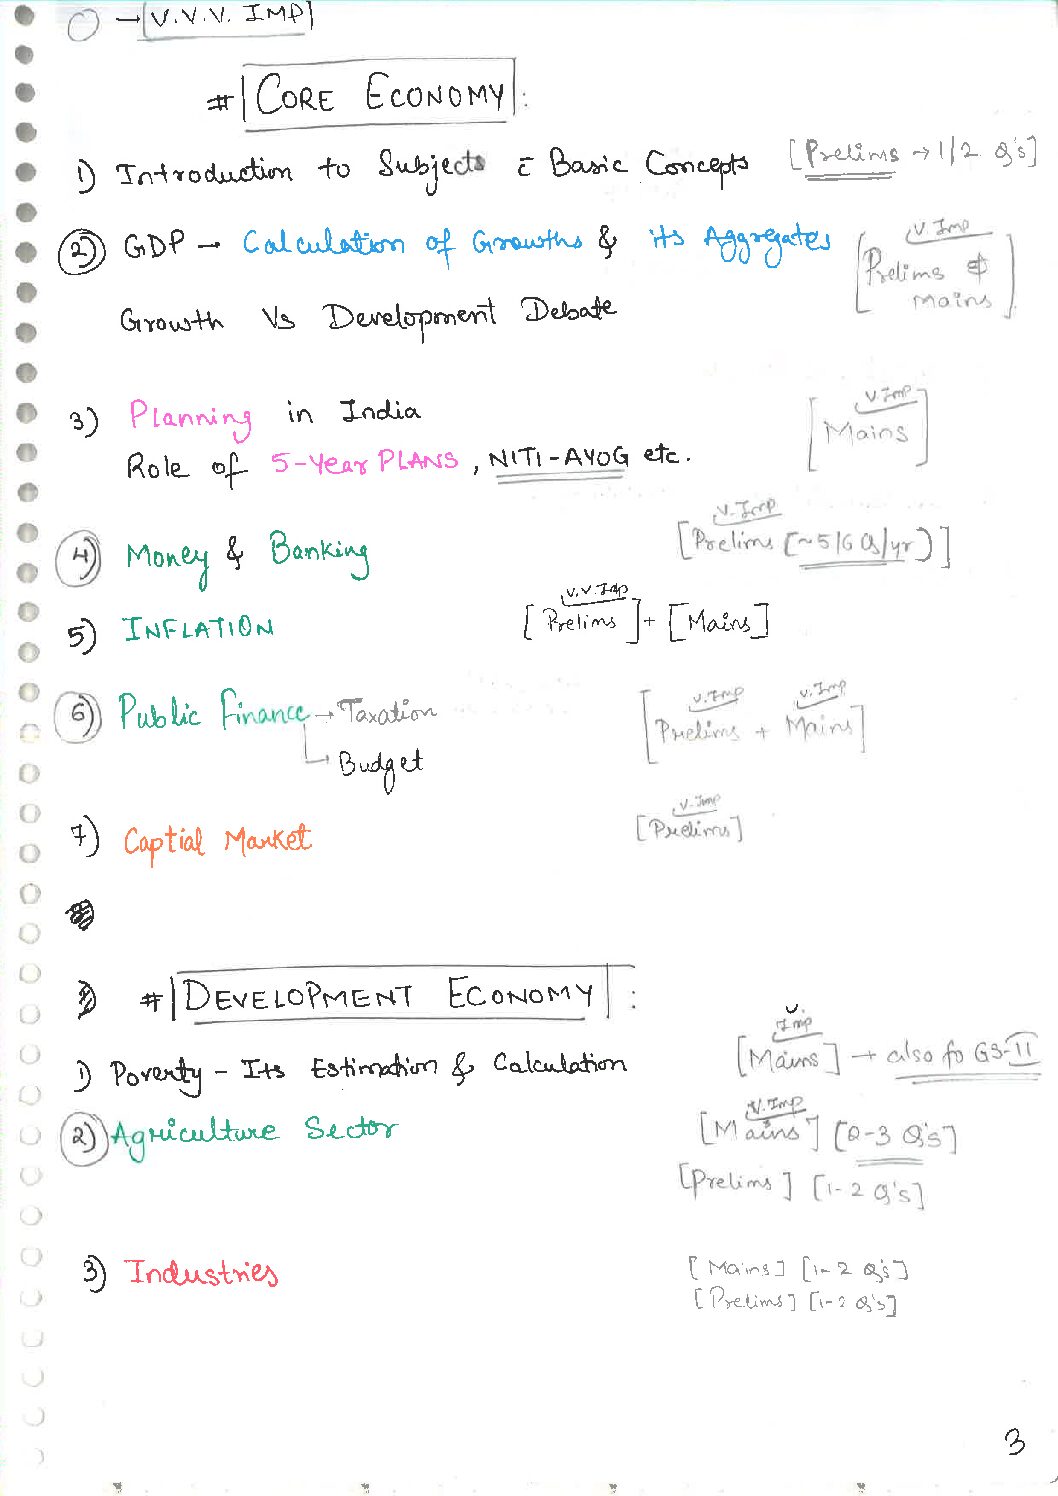 ○ → V.V.V. IMP
# CORE ECONOMY :
1) Introduction to Subjects c̄ Basic Concepts [Prelims → 1/2 Q's]
2) GDP → Calculation of Growths & its Aggregates [Prelims & Mains] V.Imp
Growth Vs Development Debate
3) Planning in India [Mains] V.Imp
Role of 5-Year PLANS, NITI-AYOG etc.
4) Money & Banking [Prelims (~5/6 Qs/yr)] V.Imp
5) INFLATION [Prelims] + [Mains] V.V Imp
6) Public Finance → Taxation [Prelims + Mains] V.Imp V.Imp
Budget
7) Captial Market [Prelims] V.Imp
# DEVELOPMENT ECONOMY :
1) Poverty - Its Estimation & Calculation [Mains] → also fo GS-II V. Imp
2) Agriculture Sector [Mains] [2-3 Q's] V.Imp
[Prelims] [1-2 Q's]
3) Industries [Mains] [1-2 Q's]
[Prelims] [1-2 Q's]
3